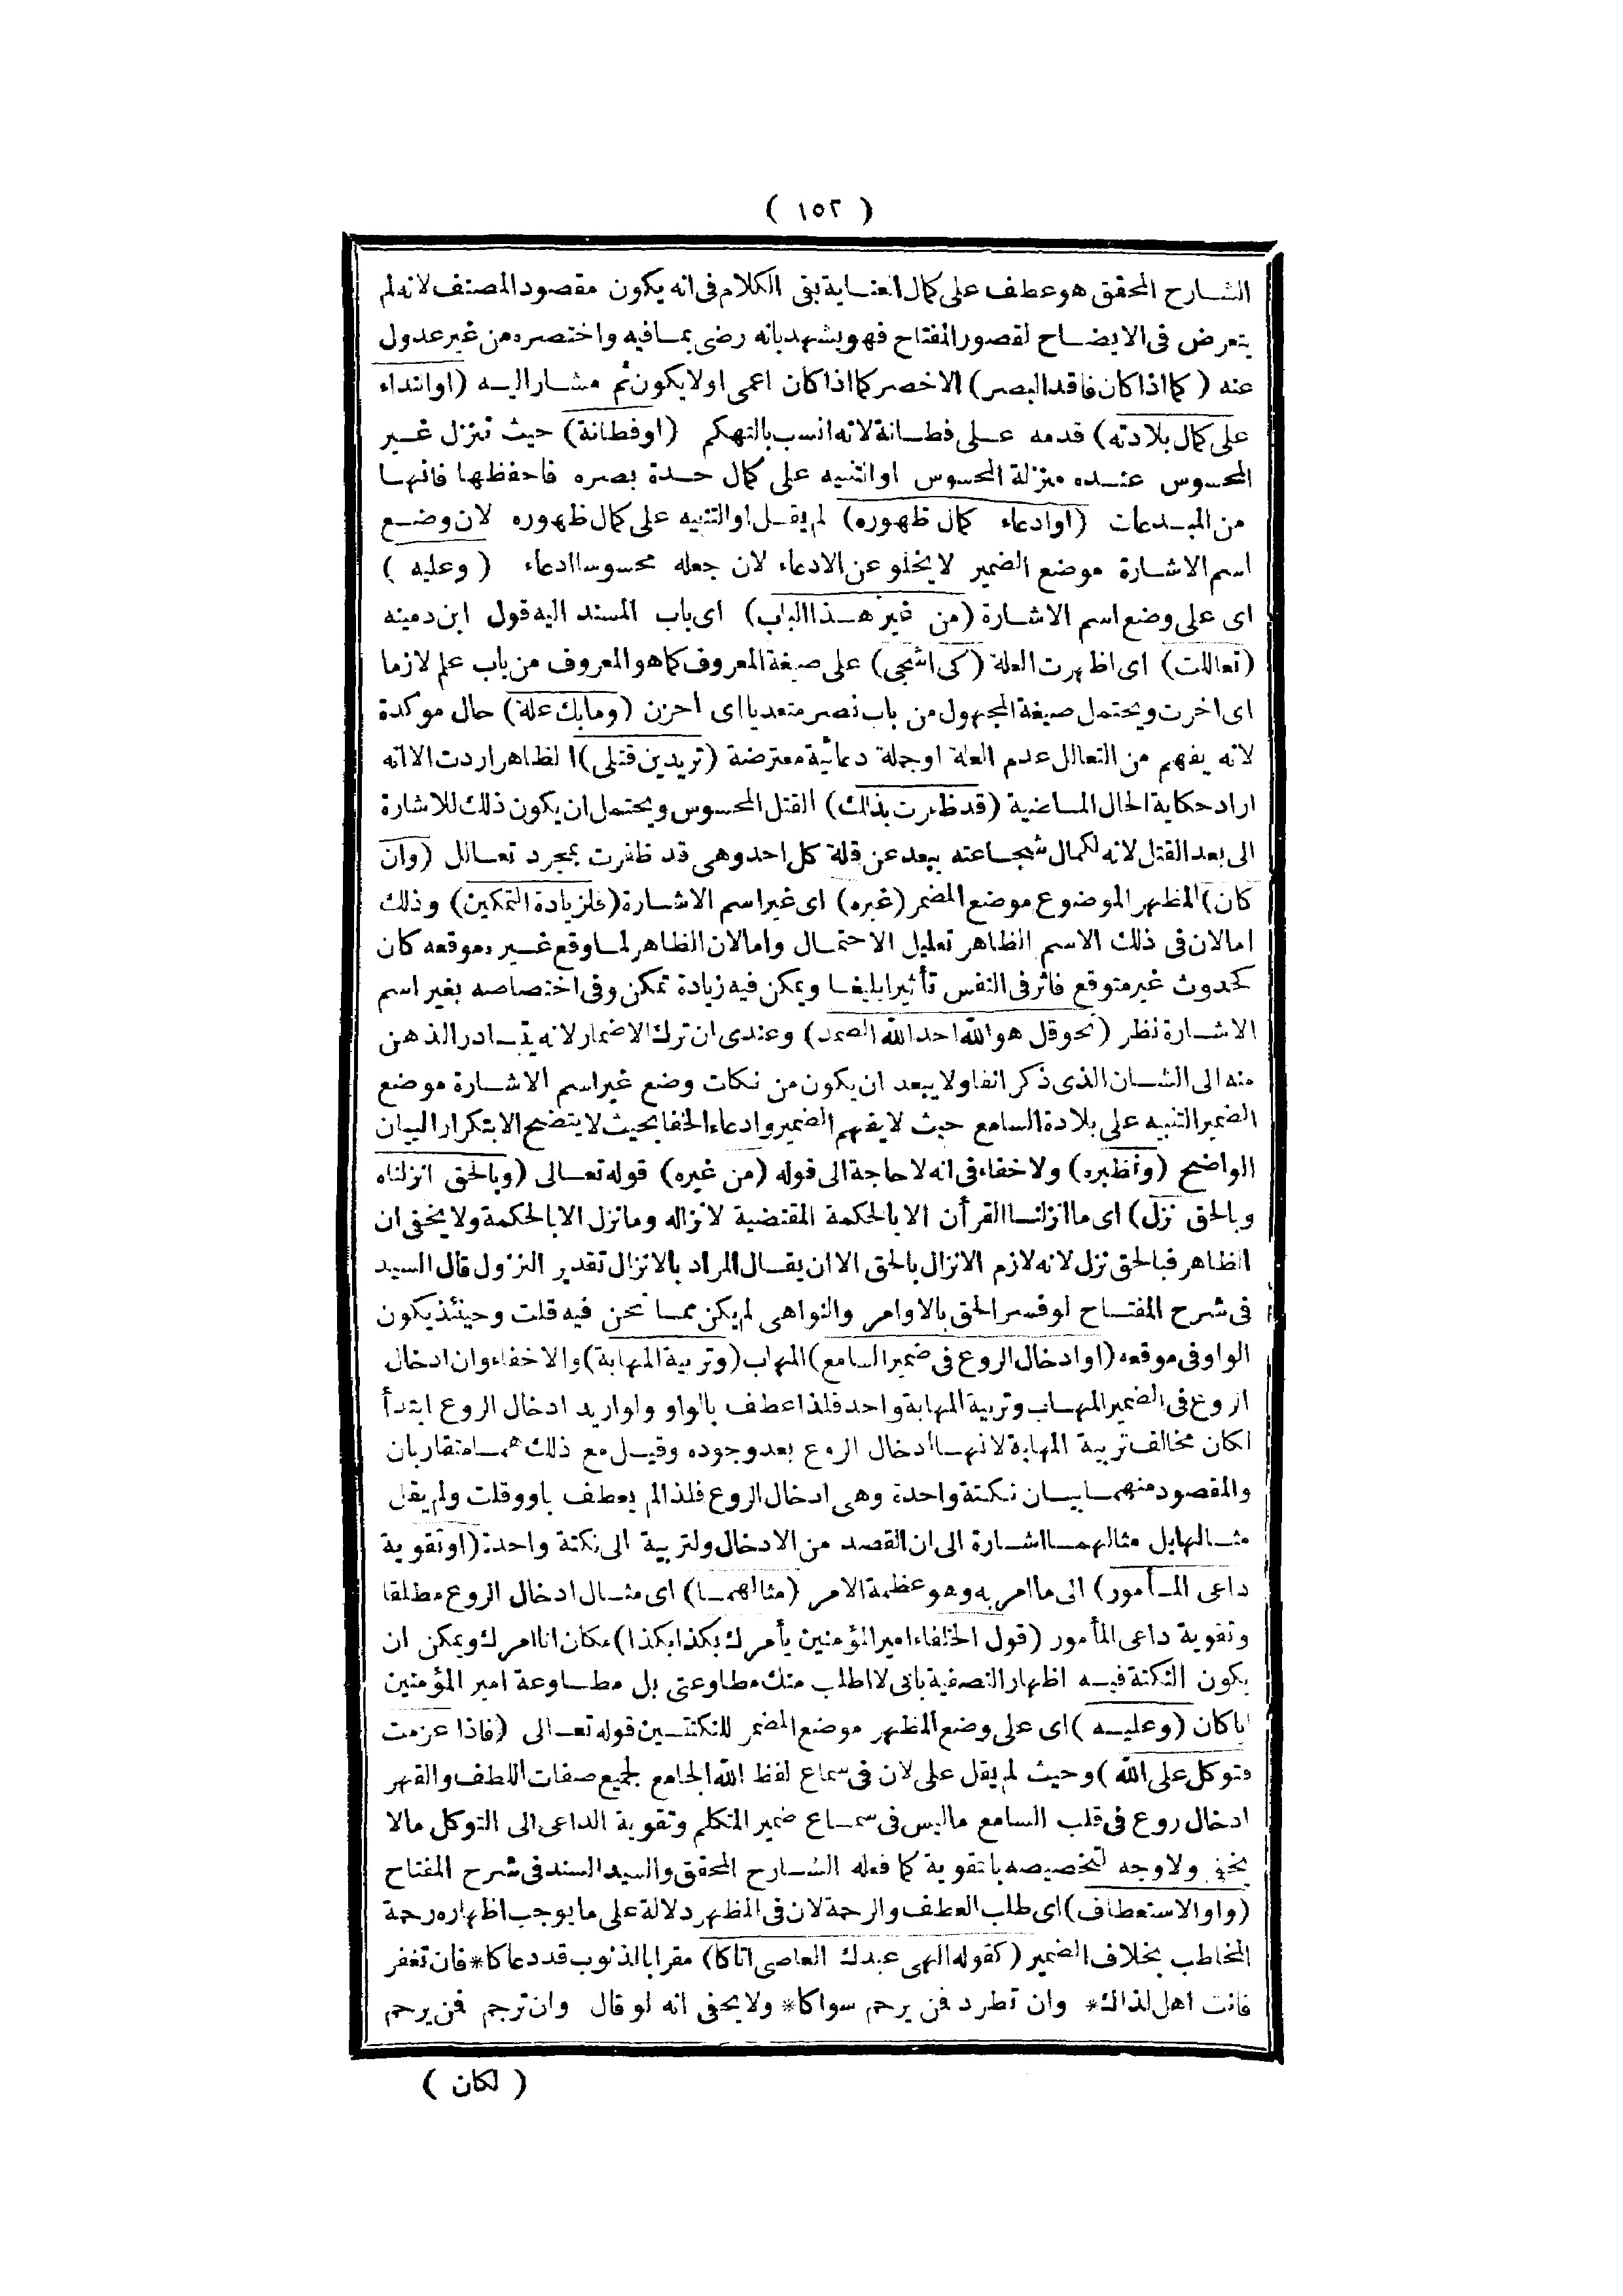 ( ١٥٢ )
الشارح المحقق هو عطف على كمال العناية بقى الكلام فى انه يكون مقصود المصنف لانه لم
يتعرض فى الايضاح لقصور المفتاح فهو يشهد بانه رضى بما فيه واختصره من غير عدول
عنه ( كما اذا كان فاقد البصر ) الاخصر كما اذا كان اعمى او لا يكون ثم مشار اليه (او النداء
على كمال بلادته) قدمه على فطانة لانه انسب بالتهكم (او فطانة) حيث تنزل غير
المحسوس عنده منزلة المحسوس او التنبيه على كمال حدة بصره فاحفظها فانها
من المبدعات (او ادعاء كمال ظهوره) لم يقل او التنبيه على كمال ظهوره لان وضع
اسم الاشارة موضع الضمير لا يخلو عن الادعاء لان جعله محسوسا ادعاء ( وعليه )
اى على وضع اسم الاشارة (من غير هذا الباب) اى باب المسند اليه قول ابن دمينه
(تعاللت) اى اظهرت العلة (كى اشجى) على صيغة المعروف كما هو المعروف من باب علم لازما
اى اخرت ويحتمل صيغة المجهول من باب نصر متعديا اى احزن (وما بك علة) حال موكدة
لانه يفهم من التعالل عدم العلة او جملة دعائية معترضة (تريدين قتلى) الظاهر اردت الا انه
اراد حكاية الحال الماضية (قد ظفرت بذالك) القتل المحسوس ويحتمل ان يكون ذلك للاشارة
الى بعد القتل لانه لكمال شجاعته يبعد عن قلة كل احد وهى قد ظفرت بمجرد تعالل (وان
كان) المظهر الموضوع موضع المضمر (غيره) اى غير اسم الاشارة (فلزيادة التمكين) وذلك
اما لان فى ذلك الاسم الظاهر تعليل الاحتمال واما لان الظاهر لما وقع غير موقعه كان
كحدوث غير متوقع فاثر فى النفس تأثيرا بليغا ويمكن فيه زيادة تمكن وفى اختصاصه بغير اسم
الاشارة نظر (نحو قل هو الله احد الله الصمد) وعندى ان ترك الاضمار لانه يتبادر الذهن
منه الى الشان الذى ذكر انفا ولا يبعد ان يكون من نكات وضع غير اسم الاشارة موضع
الضمير التنبيه على بلادة السامع حيث لا يفهم الضمير وادعاء الخفا بحيث لا يتضح الا بتكرار البيان
الواضح (ونظيره) ولا خفاء فى انه لا حاجة الى قوله (من غيره) قوله تعالى (وبالحق انزلناه
وبالحق نزل) اى ما انزلنا القرأن الا بالحكمة المقتضية لانزاله وما نزل الا بالحكمة ولا يخفى ان
الظاهر فبالحق نزل لانه لازم الانزال بالحق الا ان يقال المراد بالانزال تقدير النزول قال السيد
فى شرح المفتاح لو فسر الحق بالاوامر والنواهى لم يكن مما نحن فيه قلت وحينئذ يكون
الواو فى موقعه (او ادخال الروع فى ضمير السامع) المهاب (وتربية المهابة) والاخفاء وان ادخال
الروع فى الضمير المهاب وتربية المهابة واحد فلذا عطف بالواو ولو اريد ادخال الروع ابتدأ
لكان مخالف تربية المهابة لانها ادخال الروع بعد وجوده وقيل مع ذلك هما متقاربان
والمقصود منهما بيان نكتة واحدة وهى ادخال الروع فلذا لم يعطف باو وقلت ولم يقل
مثالها بل مثالهما اشارة الى ان القصد من الادخال ولتربية الى نكتة واحدة (او تقوية
داعى المأمور) الى ما امر به وهو عظمة الامر (مثالهما) اى مثال ادخال الروع مطلقا
وتقوية داعى المأمور (قول الخلفاء امير المؤمنين يأمرك بكذا بكذا) مكان انا امرك ويمكن ان
يكون النكتة فيه اظهار النصفية بانى لا اطلب منك مطاوعتى بل مطاوعة امير المؤمنين
ايا كان (وعليه) اى على وضع المظهر موضع المضمر للنكتتين قوله تعالى (فاذا عزمت
فتوكل على الله) وحيث لم يقل على لان فى سماع لفظ الله الجامع لجميع صفات اللطف والقهر
ادخال روع فى قلب السامع ما ليس فى سماع ضمير المتكلم وتقوية الداعى الى التوكل ما لا
يخفى ولا وجه لتخصيصه بالتقوية كما فعله الشارح المحقق والسيد السند فى شرح المفتاح
(واو الاستعطاف) اى طلب العطف والرحمة لان فى المظهر دلالة على ما يوجب اظهاره رحمة
المخاطب بخلاف الضمير (كقوله الهى عبدك العاصى اتاكا) مقرا بالذنوب قد دعاكا* فان تغفر
فانت اهل لذاك* وان تطرد فمن يرحم سواكا* ولا يخفى انه لو قال وان ترجم فمن يرحم
( لكان )